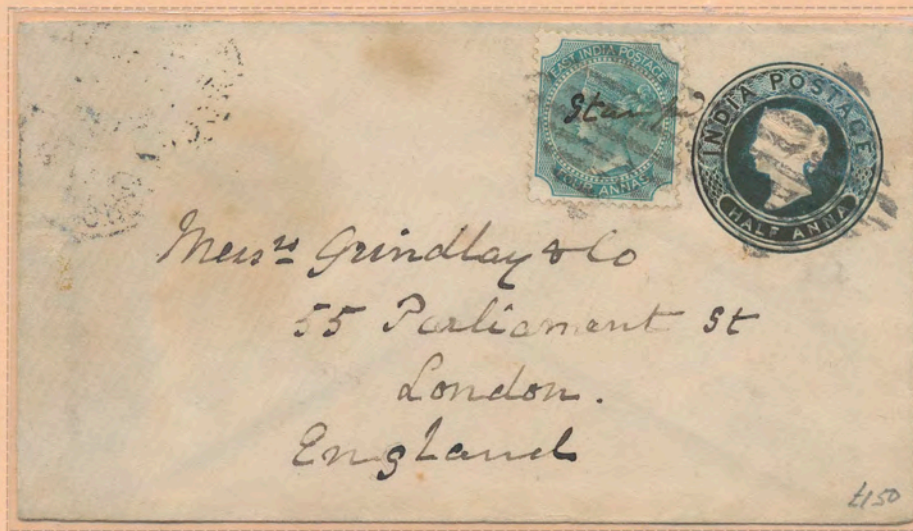 EAST INDIA POSTAGE
Stamp
FOUR ANNAS
INDIA POSTAGE
HALF ANNA
Messrs Grindlay & Co
55 Parliament St
London.
England
£150